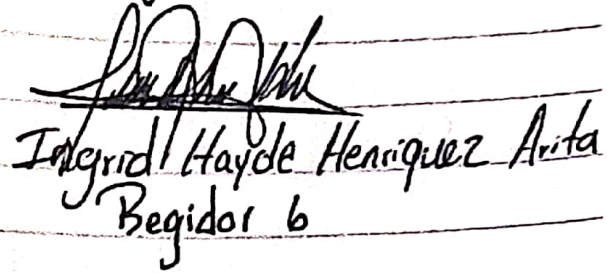 Ingrid Hayde Henriquez Arita
Begidor 6